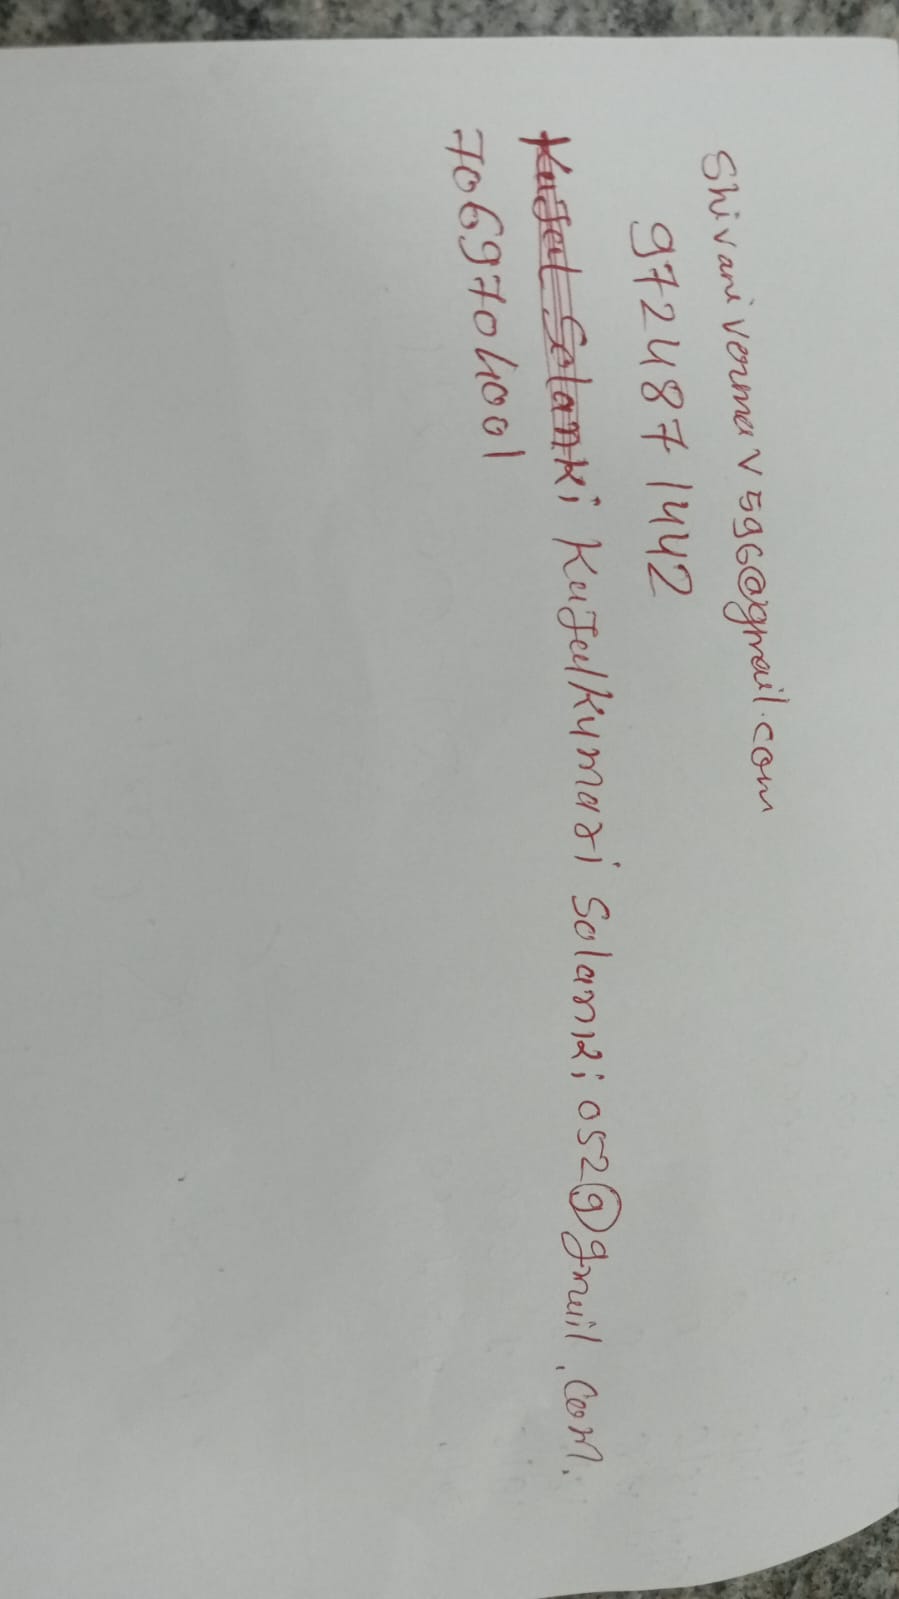 Shivanivermav596@gmail.com
9724871442
Kajal Solanki Kajalkumarisolanki052@gmail.com.
7069704001